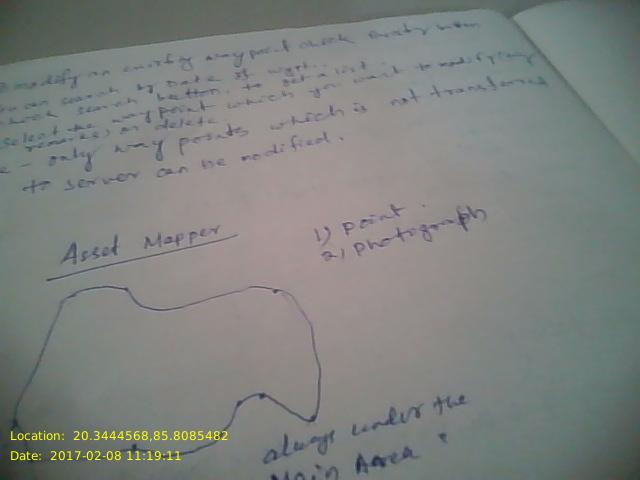 modify an existing way point check modify button
you can search by Date of wypt.
check search button, to get a list.
select the way point which you want to modify/copy
remove, or delete.
e - only way points which is not transferred
to server can be modified.
Asset Mapper
1) point.
2) photograph
always under the
Main Area
Location: 20.3444568,85.8085482
Date: 2017-02-08 11:19:11